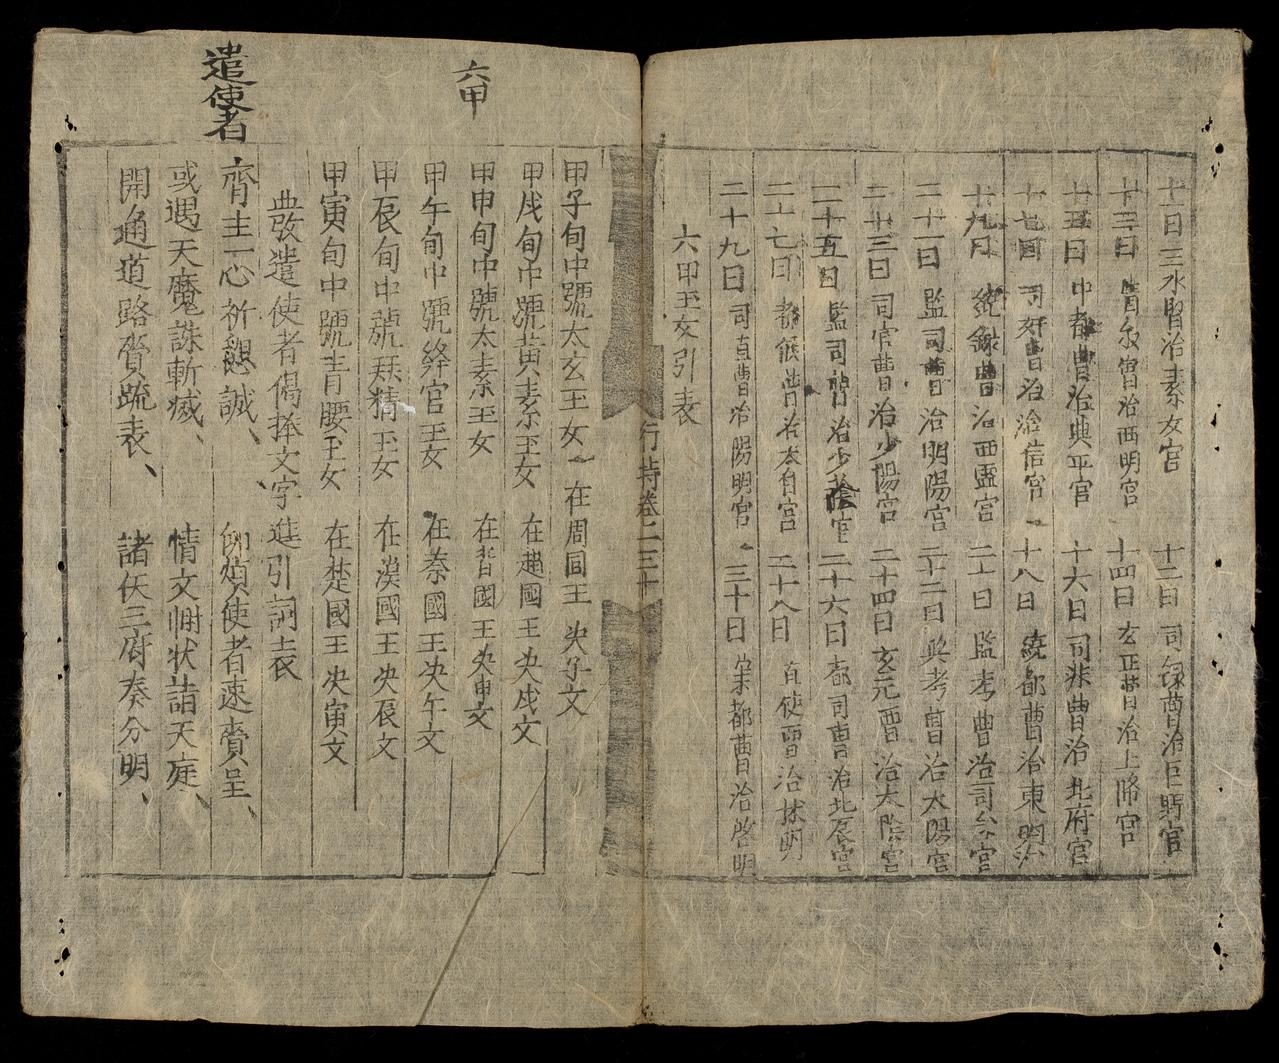 十一日三水賢治素女宮　十二日司録曹治巨
十三日　曹治西明宮　十四日玄正曹治上
十五日中都曹治典平宮　十六日司　曹治北府宮
十七日司　曹治　信宮　十八日統都曹治東明
十九日統録曹治西霊宮　二十日監考曹治司
二十一日監司曹治明陽宮　二十二日典考曹治太陽宮
二十三日司官曹治少陽宮　二十四日玄元曹治太陰宮
二十五日監司曹治少陰宮　二十六日都司曹治北辰宮
二十七日都候曹治太　宮　二十八日直使曹治　明
二十九日司直曹治陽明宮　三十日　都曹治啓明
六甲玉女引表
行持卷二　三十
六甲
甲子旬中號太玄玉女　在周國王　夬子文
甲戌旬中號黃素玉女　在趙國王夬戌文
甲申旬中號太素玉女　在晋國王夬申文
甲午旬中號絳官玉女　在秦國王夬午文
甲辰旬中號　精玉女　在漢國王夬辰文
甲寅旬中號青腰玉女　在楚國王夬寅文
遣使者
典　遣使者偈捧文字進引詞表
齊主一心祈懇誠、　仰煩使者速賫呈、
或遇天魔誅斬滅、　情文　狀詣天庭、
開通道路賫疏表、　諸　三府奏分明、